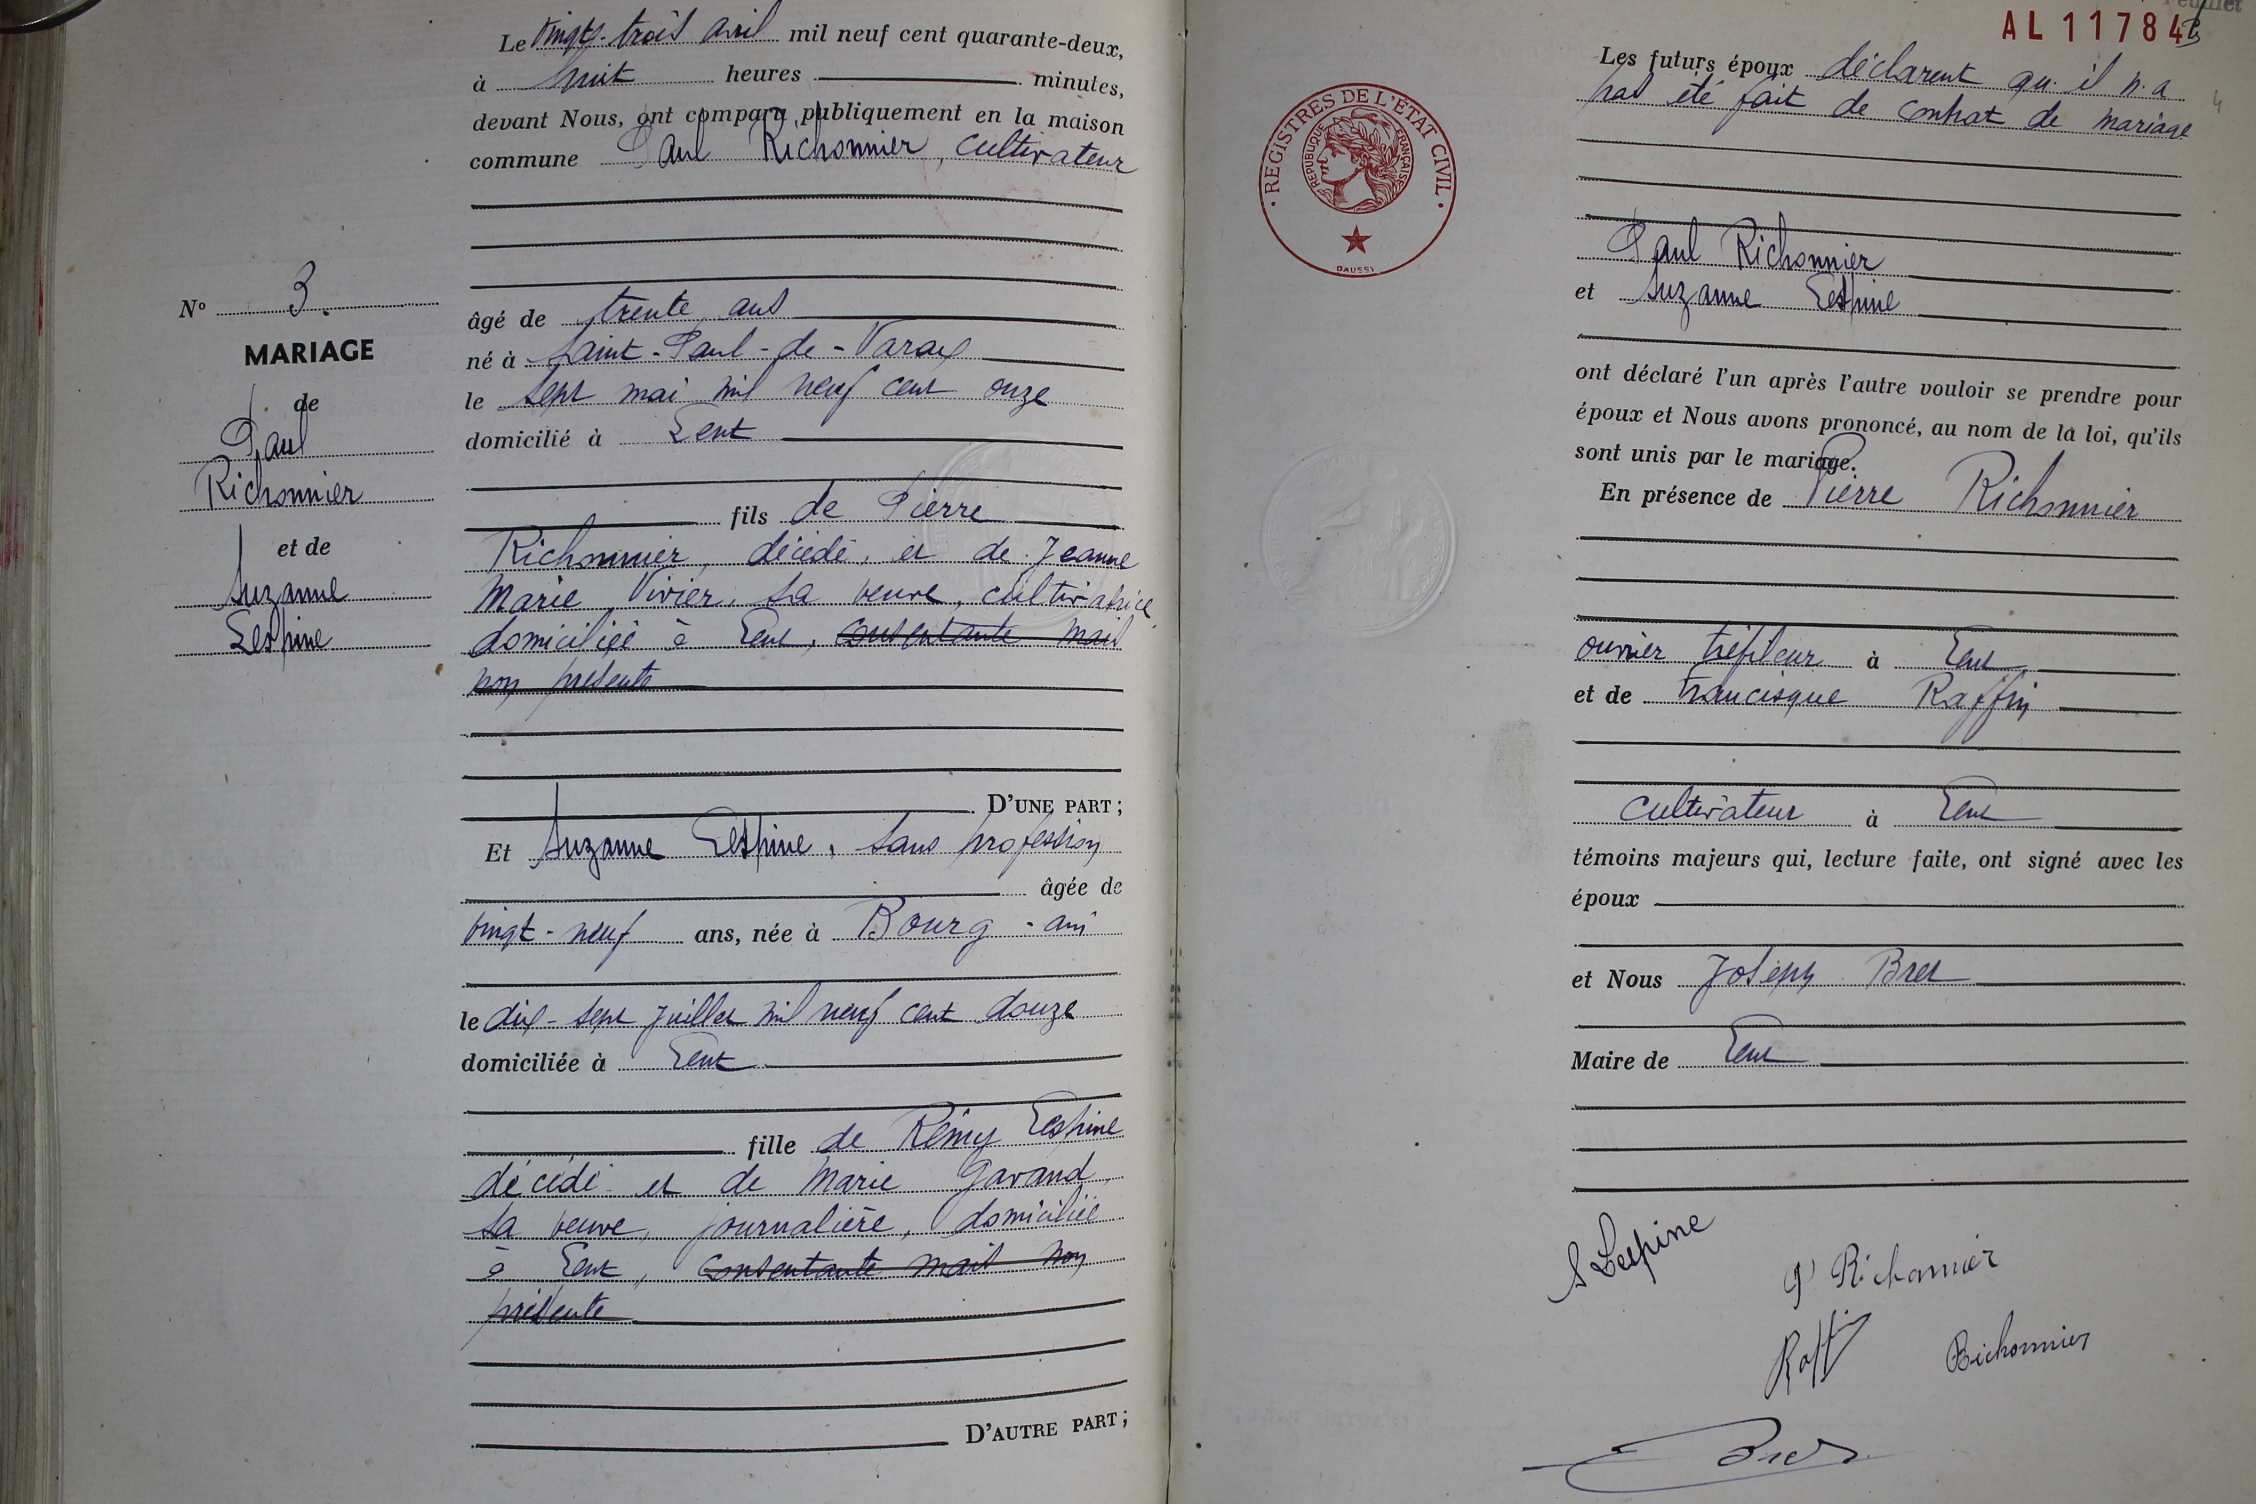 Le vingt-trois avril mil neuf cent quarante-deux,
à huit heures minutes,
devant Nous, ont comparu publiquement en la maison
commune Paul Richonnier, cultivateur
âgé de trente ans
né à Saint-Paul-de-Varax
le sept mai mil neuf cent onze
domicilié à Lent
fils de Pierre
Richonnier, décédé, et de Jeanne
Marie Vivier, sa veuve, cultivatrice
domiciliée à Lent, consentante mais
non présente
D'UNE PART ;
Et Suzanne Lespine, sans profession
âgée de
vingt-neuf ans, née à Bourg - ain
le dix-sept juillet mil neuf cent douze
domiciliée à Lent
fille de Rémy Lespine
décédé et de Marie Gavand,
sa veuve, journalière, domiciliée
à Lent, consentante mais non
présente
D'AUTRE PART ;
N° 3.
MARIAGE
de
Paul
Richonnier
et de
Suzanne
Lespine
Feuillet
AL 11784
Les futurs époux déclarent qu'il n'a
pas été fait de contrat de mariage
Paul Richonnier
et Suzanne Lespine
ont déclaré l'un après l'autre vouloir se prendre pour
époux et Nous avons prononcé, au nom de la loi, qu'ils
sont unis par le mariage.
En présence de Pierre Richonnier
ouvrier tréfileur à Lent
et de Francisque Raffin
cultivateur à Lent
témoins majeurs qui, lecture faite, ont signé avec les
époux
et Nous Joseph Bret
Maire de Lent
S Lespine
P Richonnier
Raffin
Richonnier
Bret
· REGISTRES DE L'ÉTAT CIVIL ·
RÉPUBLIQUE FRANÇAISE
DAUSSI